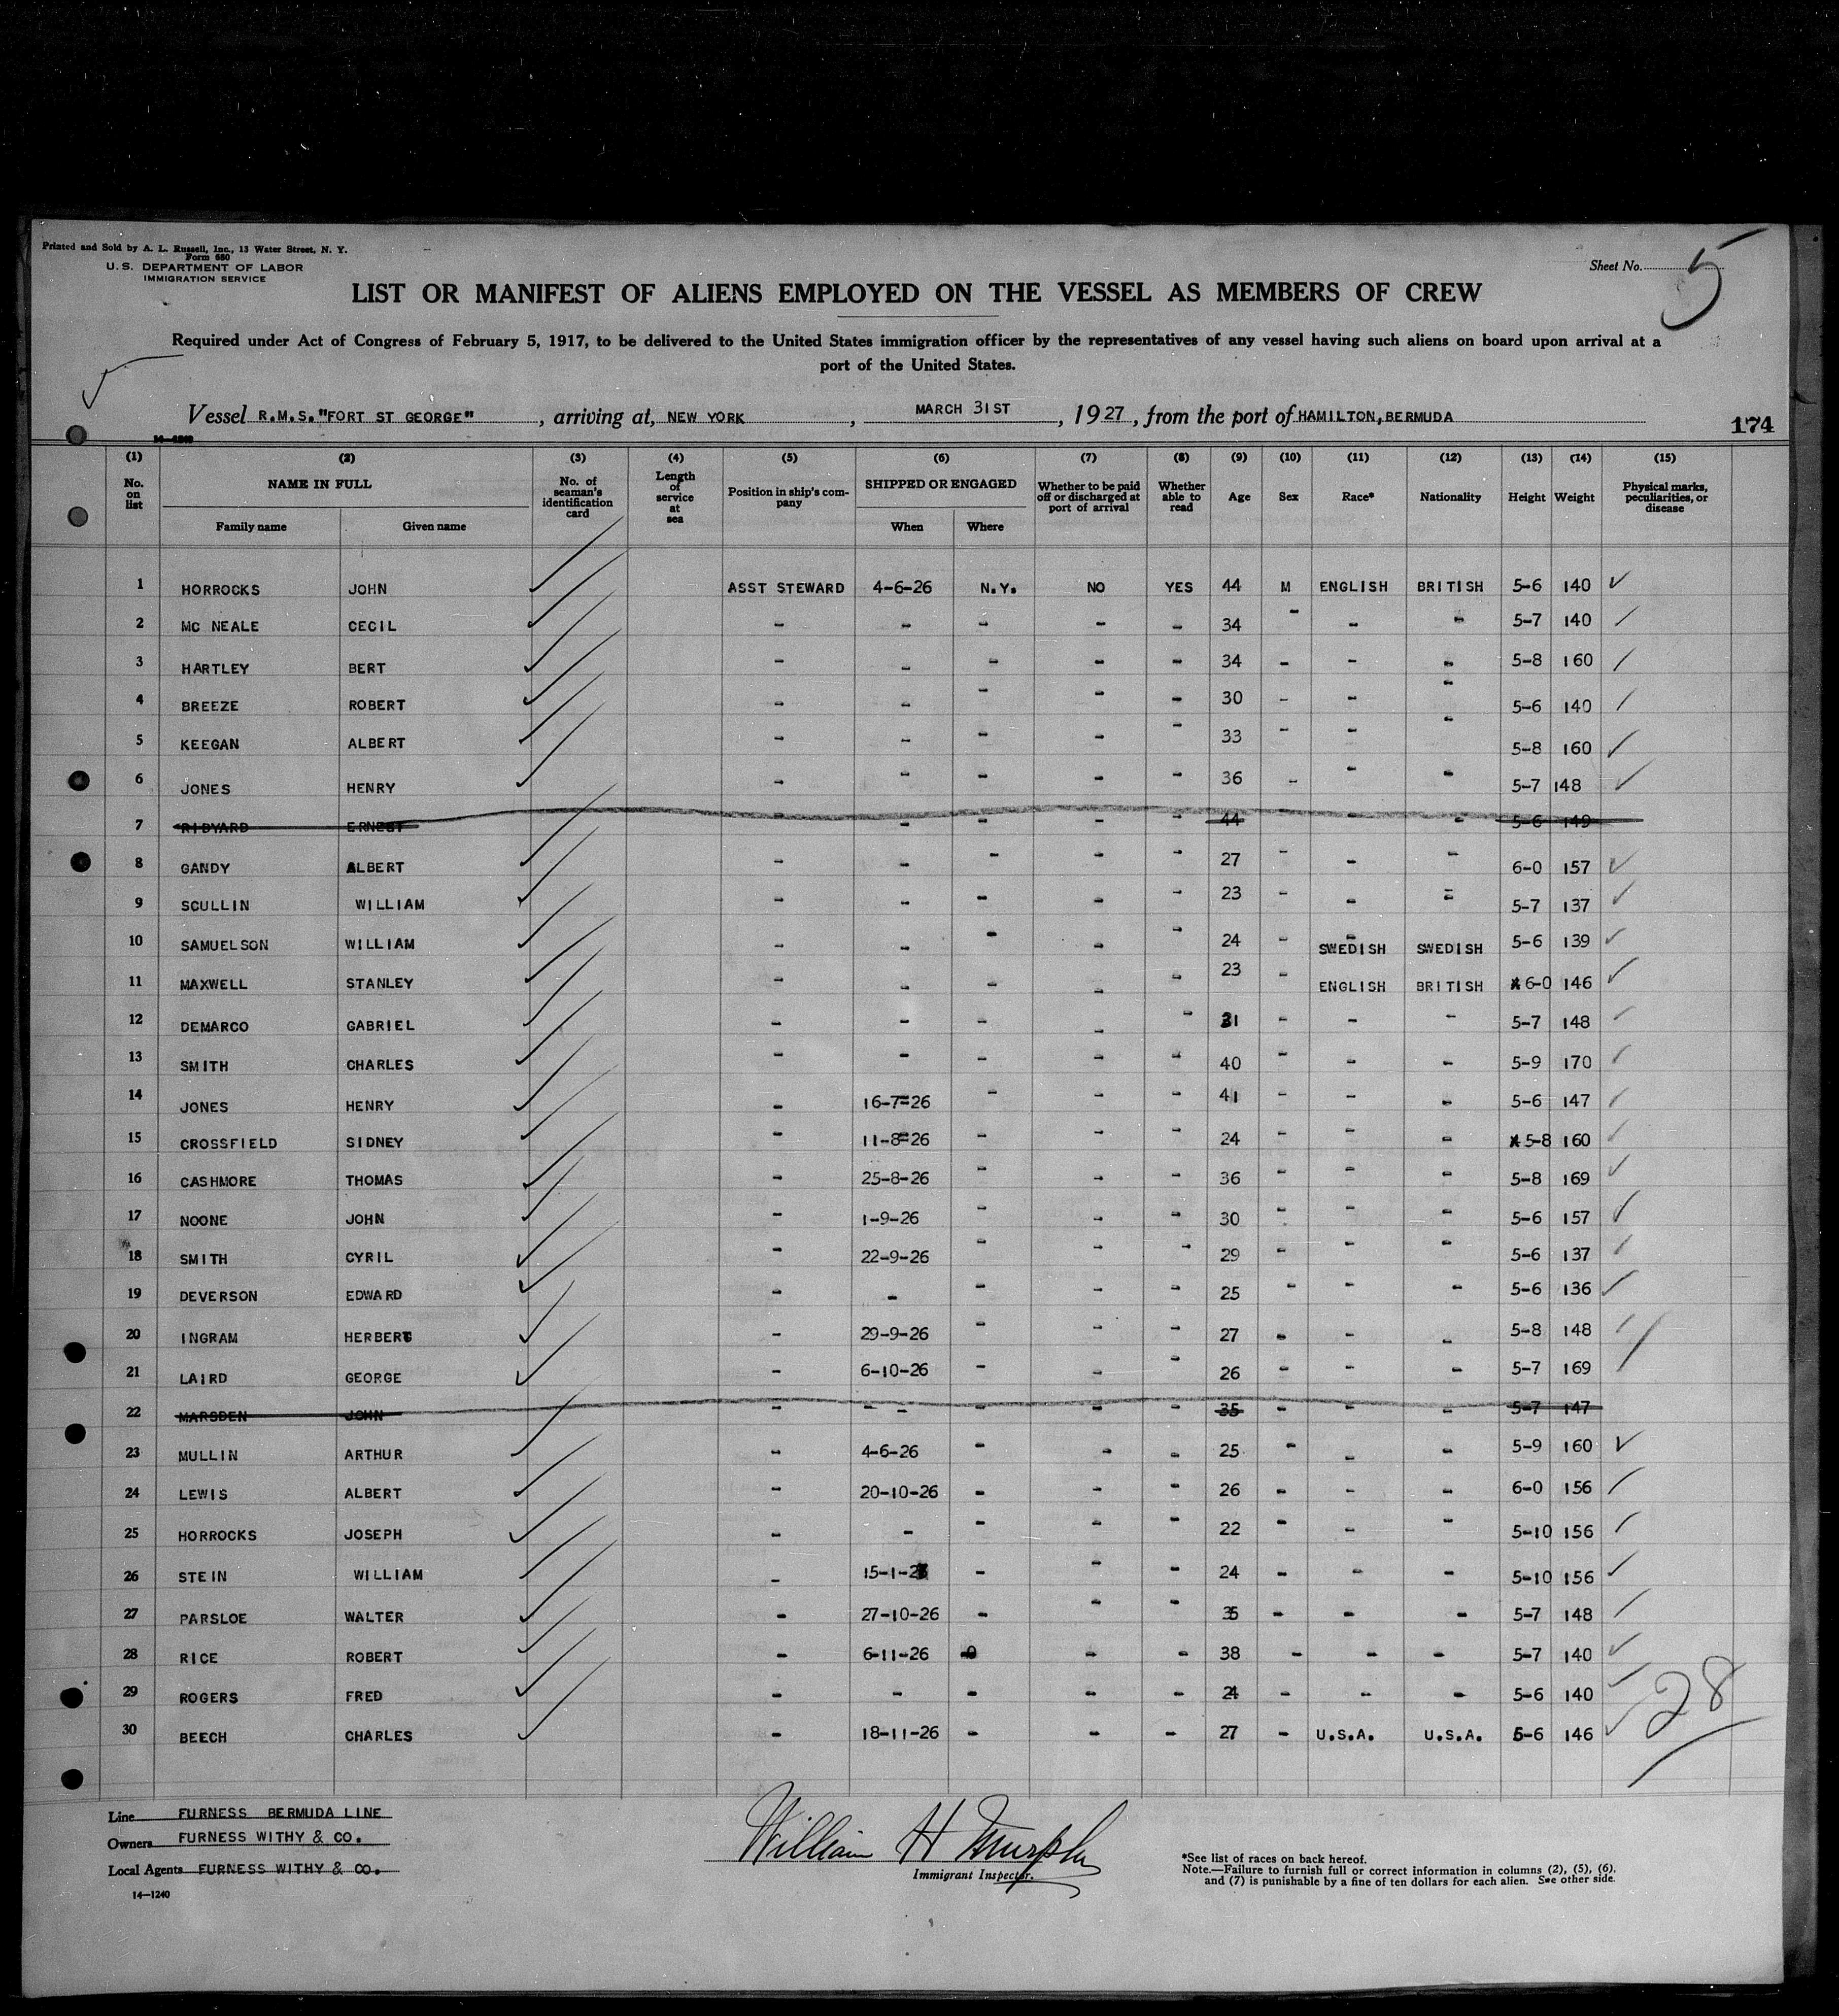 Printed and Sold by A. L. Russell, Inc., 13 Water Street, N. Y.
Form 680
U. S. DEPARTMENT OF LABOR
IMMIGRATION SERVICE
Sheet No. 5
LIST OR MANIFEST OF ALIENS EMPLOYED ON THE VESSEL AS MEMBERS OF CREW
Required under Act of Congress of February 5, 1917, to be delivered to the United States immigration officer by the representatives of any vessel having such aliens on board upon arrival at a
port of the United States.
Vessel R.M.S. "FORT ST GEORGE", arriving at, NEW YORK, MARCH 31ST, 1927, from the port of HAMILTON, BERMUDA
174
14-1240
(1) (2) (3) (4) (5) (6) (7) (8) (9) (10) (11) (12) (13) (14) (15)
No. on list NAME IN FULL Family name Given name No. of seaman's identification card Length of service at sea Position in ship's company SHIPPED OR ENGAGED When Where Whether to be paid off or discharged at port of arrival Whether able to read Age Sex Race* Nationality Height Weight Physical marks, peculiarities, or disease
1 HORROCKS JOHN ASST STEWARD 4-6-26 N.Y. NO YES 44 M ENGLISH BRITISH 5-6 140
2 MC NEALE CECIL - - - - - 34 - - - 5-7 140
3 HARTLEY BERT - - - - - 34 - - - 5-8 160
4 BREEZE ROBERT - - - - - 30 - - - 5-6 140
5 KEEGAN ALBERT - - - - - 33 - - - 5-8 160
6 JONES HENRY - - - - - 36 - - - 5-7 148
7 RIDYARD ERNEST - - - - - 44 - - 5-6 149
8 GANDY ALBERT - - - - - 27 - - - 6-0 157
9 SCULLIN WILLIAM - - - - - 23 - - - 5-7 137
10 SAMUELSON WILLIAM - - - - - 24 - SWEDISH SWEDISH 5-6 139
11 MAXWELL STANLEY - - - - - 23 - ENGLISH BRITISH 6-0 146
12 DEMARCO GABRIEL - - - - - 31 - - - 5-7 148
13 SMITH CHARLES - - - - - 40 - - - 5-9 170
14 JONES HENRY - 16-7-26 - - - 41 - - - 5-6 147
15 CROSSFIELD SIDNEY - 11-8-26 - - - 24 - - - 5-8 160
16 CASHMORE THOMAS - 25-8-26 - - - 36 - - - 5-8 169
17 NOONE JOHN - 1-9-26 - - - 30 - - - 5-6 157
18 SMITH CYRIL - 22-9-26 - - - 29 - - - 5-6 137
19 DEVERSON EDWARD - - - - - 25 - - - 5-6 136
20 INGRAM HERBERT - 29-9-26 - - - 27 - - - 5-8 148
21 LAIRD GEORGE - 6-10-26 - - - 26 - - - 5-7 169
22 MARSDEN JOHN - - - - - - 35 - - - 5-7 147
23 MULLIN ARTHUR - 4-6-26 - - - 25 - - - 5-9 160
24 LEWIS ALBERT - 20-10-26 - - - 26 - - - 6-0 156
25 HORROCKS JOSEPH - - - - - 22 - - - 5-10 156
26 STEIN WILLIAM - 15-1-2 - - - 24 - - - 5-10 156
27 PARSLOE WALTER - 27-10-26 - - - 35 - - - 5-7 148
28 RICE ROBERT - 6-11-26 - - - 38 - - - 5-7 140
29 ROGERS FRED - - - - - 24 - - - 5-6 140
30 BEECH CHARLES - 18-11-26 - - - 27 - U.S.A. U.S.A. 5-6 146
28
Line FURNESS BERMUDA LINE
Owners FURNESS WITHY & CO.
Local Agents FURNESS WITHY & CO.
14-1240
William H Murphy
Immigrant Inspector.
*See list of races on back hereof.
Note.—Failure to furnish full or correct information in columns (2), (5), (6),
and (7) is punishable by a fine of ten dollars for each alien. See other side.